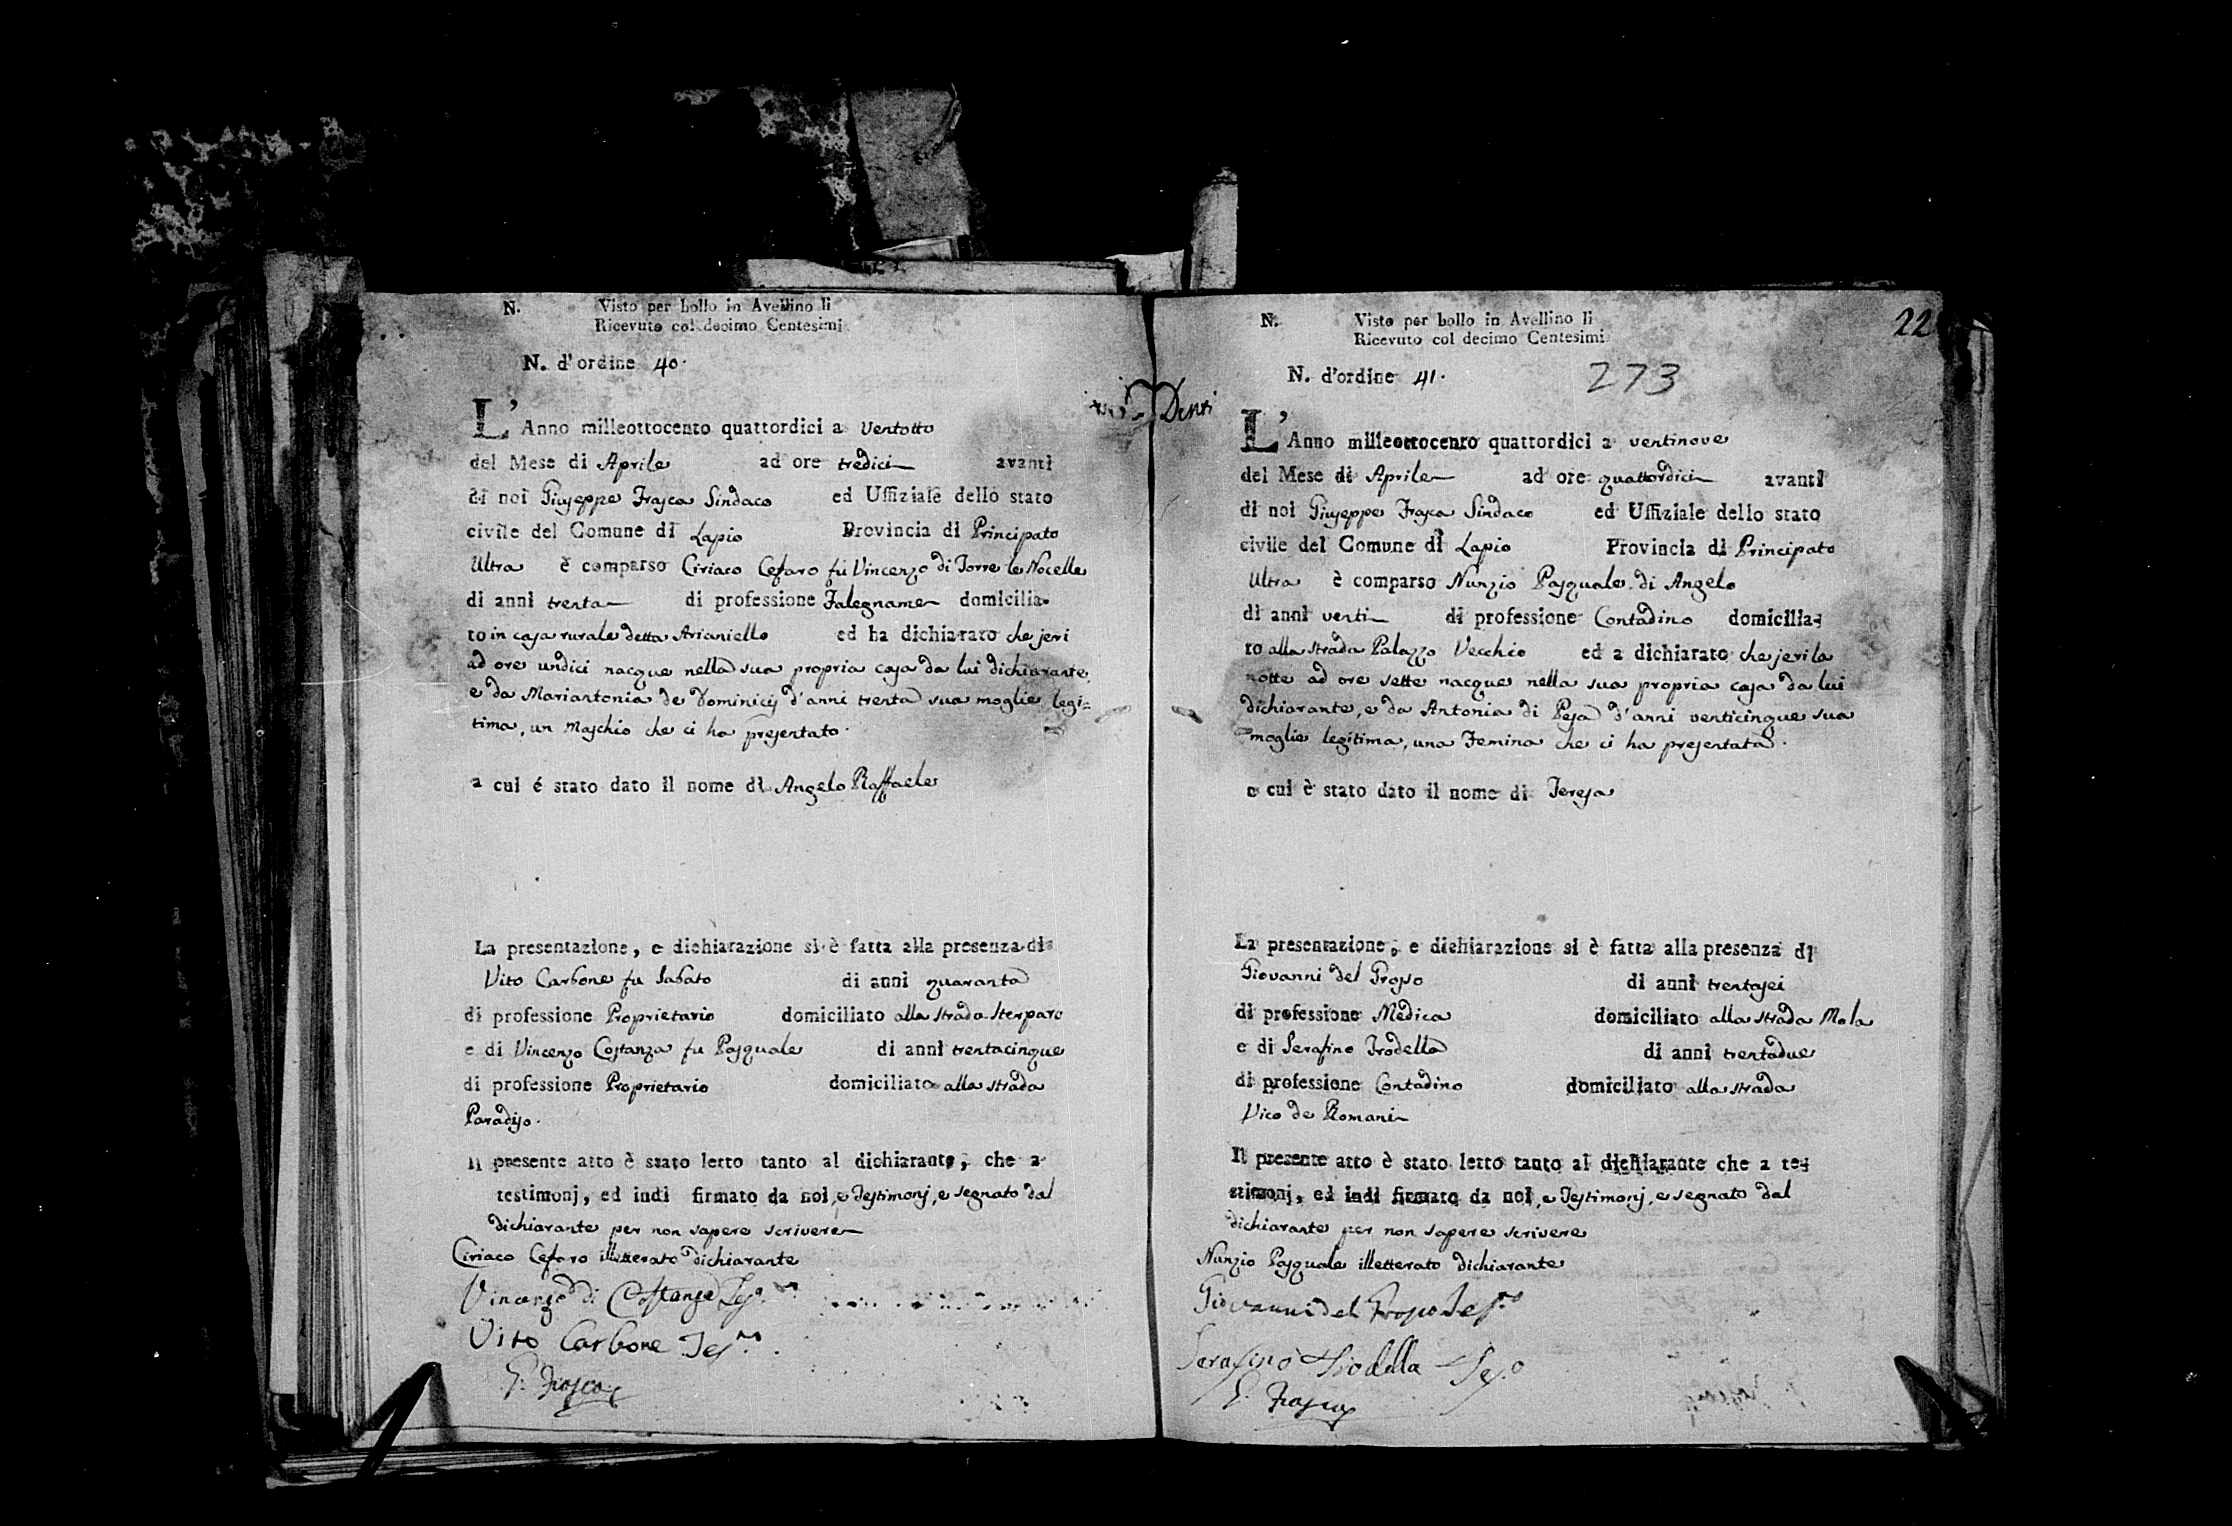 N. Visto per bollo in Avellino li
Ricevuto col decimo Centesimi
N. d'ordine 40.
L'Anno milleottocento quattordici a ventotto
del Mese di Aprile ad ore tredici avanti
di noi Giuseppe Frasca Sindaco ed Uffiziale dello stato
civile del Comune di Lapio Provincia di Principato
Ultra è comparso Ciriaco Cefaro fu Vincenzo di Torre le Nocelle
di anni trenta di professione Falegname domicilia-
to in casa rurale detta Arianiello ed ha dichiarato che jeri
ad ore undici nacque nella sua propria casa da lui dichiarante,
e da Mariantonia de Dominicij d'anni trenta sua moglie legi=
tima, un Maschio che ci ha presentato.
a cui é stato dato il nome di Angelo Raffaele
La presentazione, e dichiarazione si è fatta alla presenza di
Vito Carbone fu Sabato di anni quaranta
di professione Proprietario domiciliato alla strada Sterparo
e di Vincenzo Costanza fu Pasquale di anni trentacinque
di professione Proprietario domiciliato alla strada
Paradiso.
Il presente atto è stato letto tanto al dichiarante, che a
testimonj, ed indi firmato da noi, e Testimonj, e segnato dal
dichiarante per non sapere scrivere
Ciriaco Cefaro illetterato dichiarante
Vincenzo di Costanza Tes.
Vito Carbone Tes.mo
G. Frasca
22
N. Visto per bollo in Avellino li
Ricevuto col decimo Centesimi
N. d'ordine 41.
273
L'Anno milleottocento quattordici a ventinove
del Mese di Aprile ad ore quattordici avanti
di noi Giuseppe Frasca Sindaco ed Uffiziale dello stato
civile del Comune di Lapio Provincia di Principato
Ultra è comparso Nunzio Pasquale di Angelo
di anni venti di professione Contadino domicilia-
to alla strada Palazzo Vecchio ed a dichiarato che jeri la
notte ad ore sette nacque nella sua propria casa da lui
dichiarante, e da Antonia di Pesa d'anni venticinque sua
moglie legitima, una Femina che ci ha presentata.
a cui è stato dato il nome di Teresa
La presentazione, e dichiarazione si è fatta alla presenza di
Giovanni del Grosso di anni trentasei
di professione Medica domiciliato alla strada Mola
e di Serafino Trodella di anni trentadue
di professione Contadino domiciliato alla strada
Vico de Romani
Il presente atto è stato letto tanto al dichiarante che a te-
stimonj, ed indi firmato da noi, e Testimonj, e segnato dal
dichiarante per non sapere scrivere
Nunzio Pasquale illetterato dichiarante
Giovanni del Grosso Tes.mo
Serafino Trodella Tes.o
G. Frasca